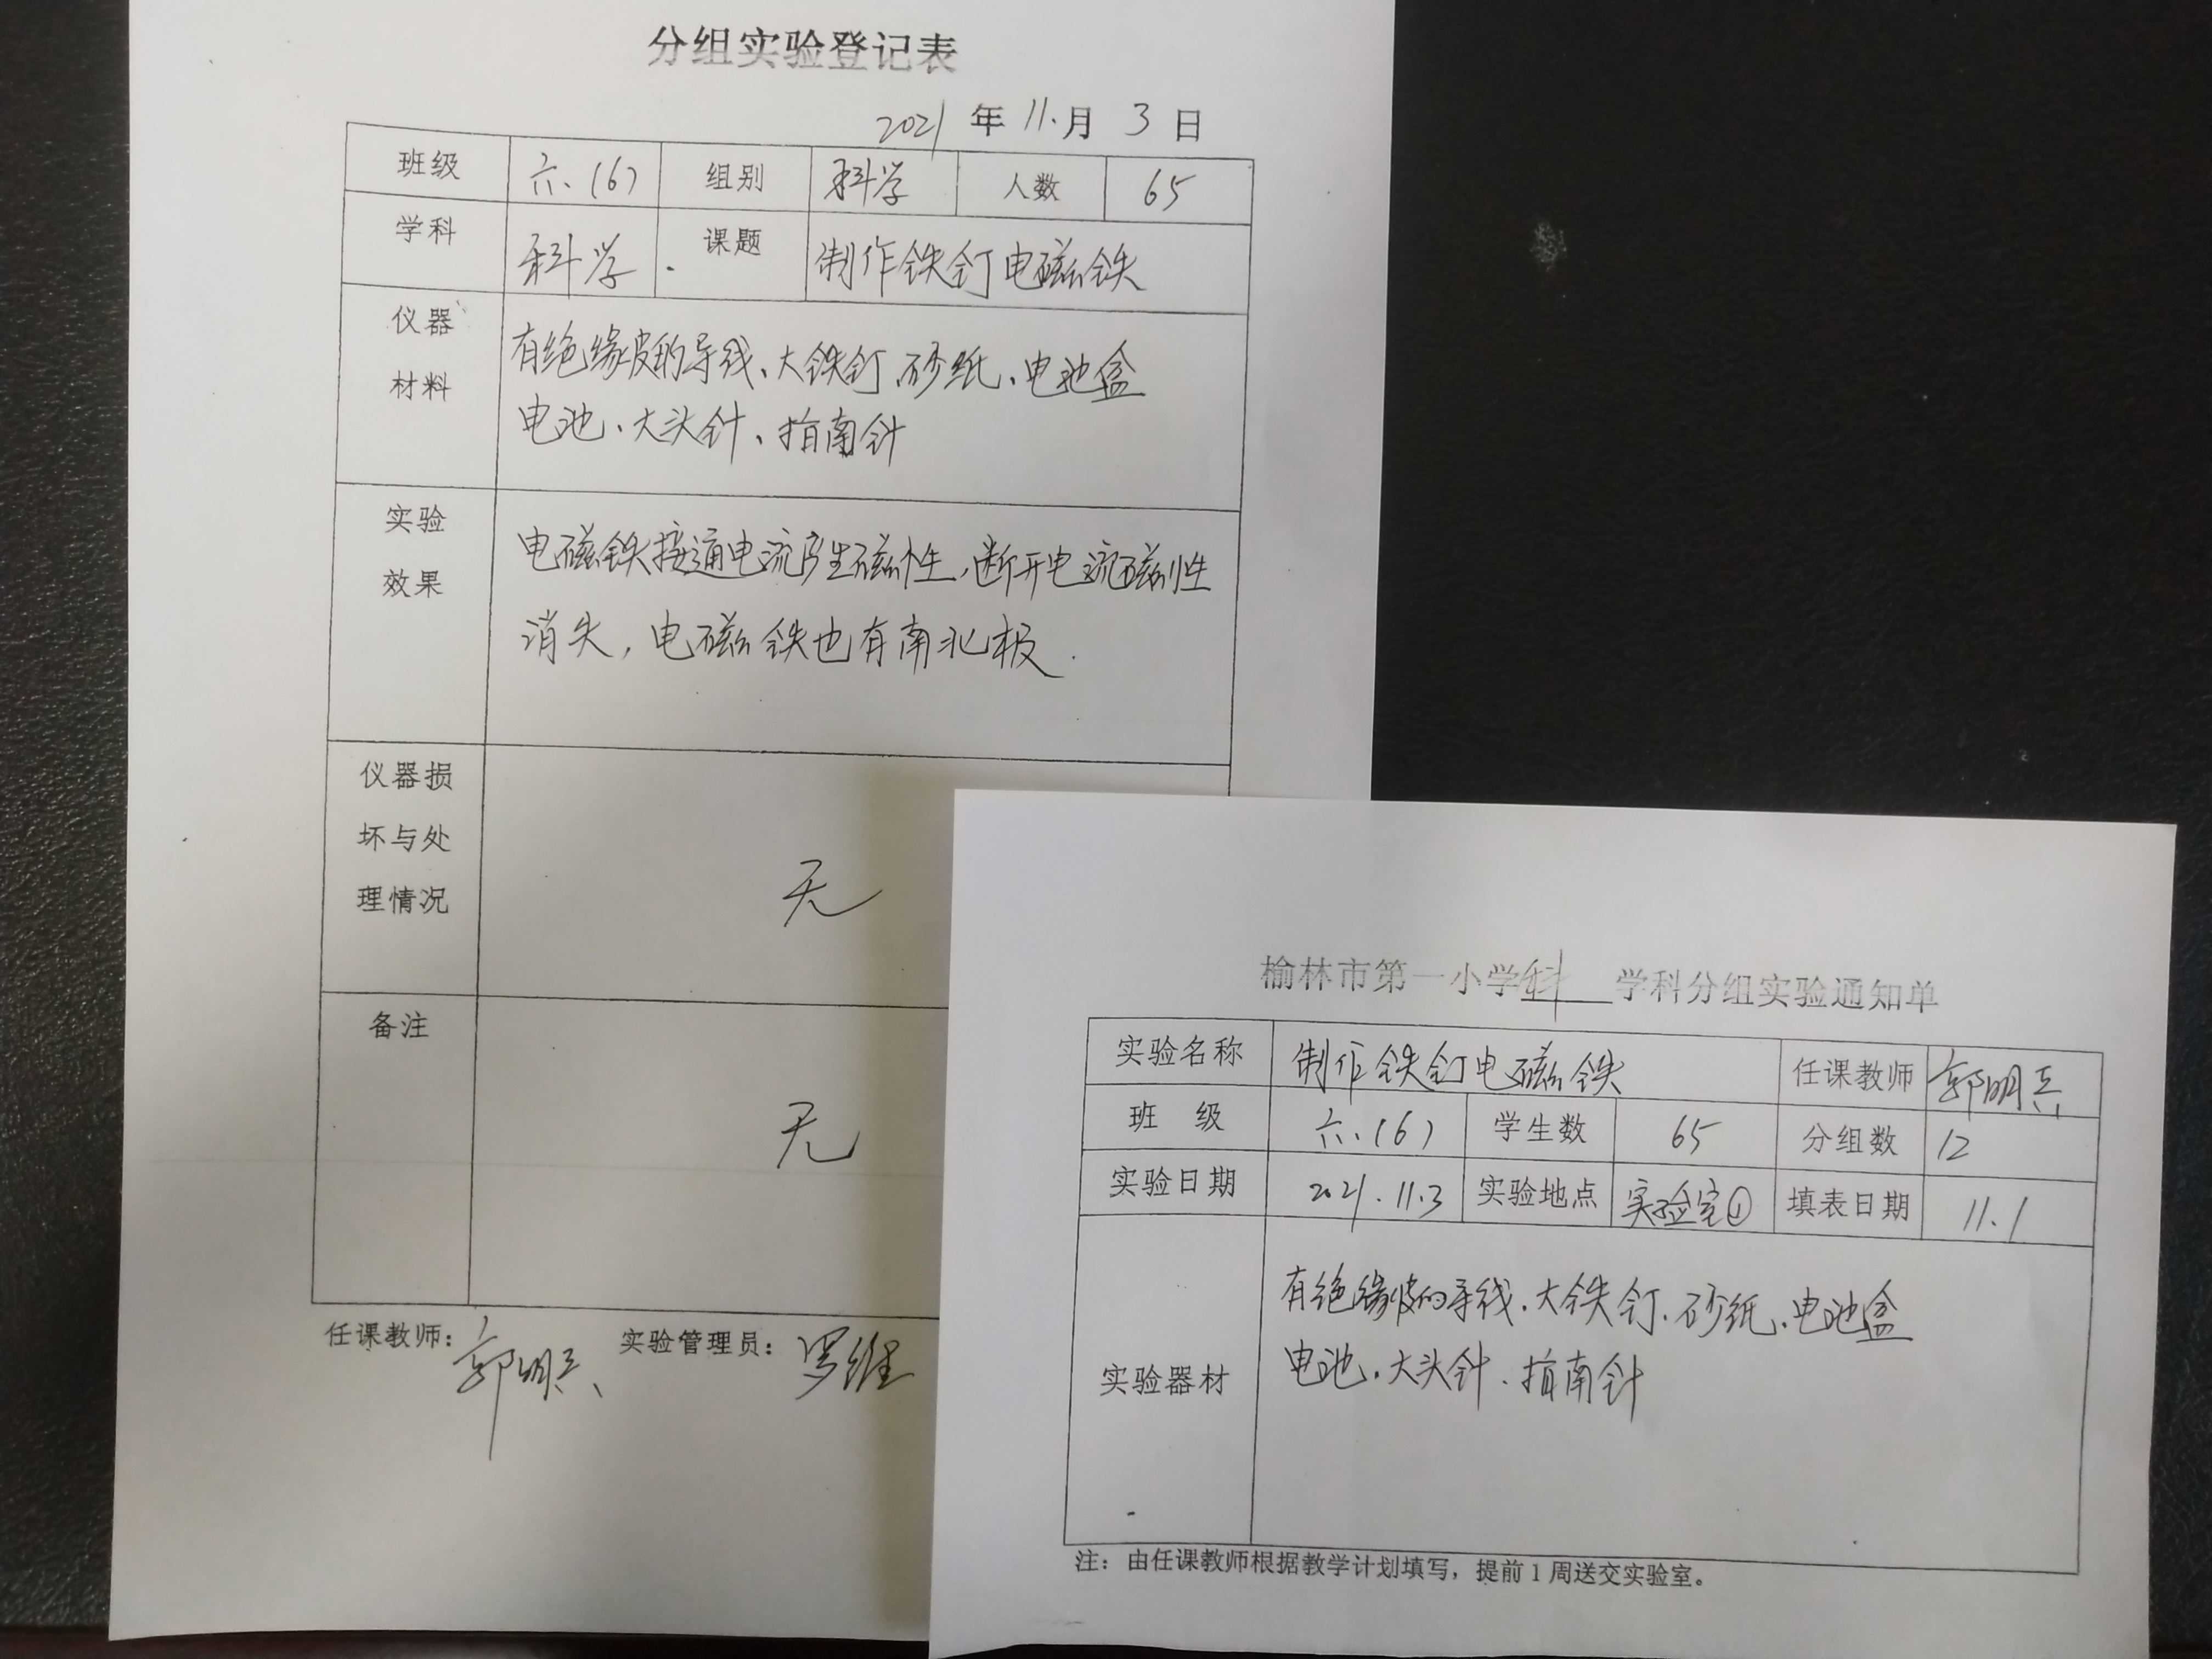 分组实验登记表
2021 年 11.月 3 日
班级 六.(6) 组别 科学 人数 65
学科 科学. 课题 制作铁钉电磁铁
仪器
材料
有绝缘皮的导线、大铁钉、砂纸、电池盒
电池、大头针、指南针
实验
效果
电磁铁接通电流产生磁性,断开电流磁性
消失,电磁铁也有南北极.
仪器损
坏与处
理情况
无
备注
无
任课教师: 郭明兵 实验管理员: 罗维
榆林市第一小学科 学科分组实验通知单
实验名称 制作铁钉电磁铁 任课教师 郭明兵
班 级 六.(6) 学生数 65 分组数 12
实验日期 2021.11.3 实验地点 实验室① 填表日期 11.1
实验器材
有绝缘皮的导线、大铁钉、砂纸、电池盒
电池、大头针、指南针
注：由任课教师根据教学计划填写，提前1周送交实验室。